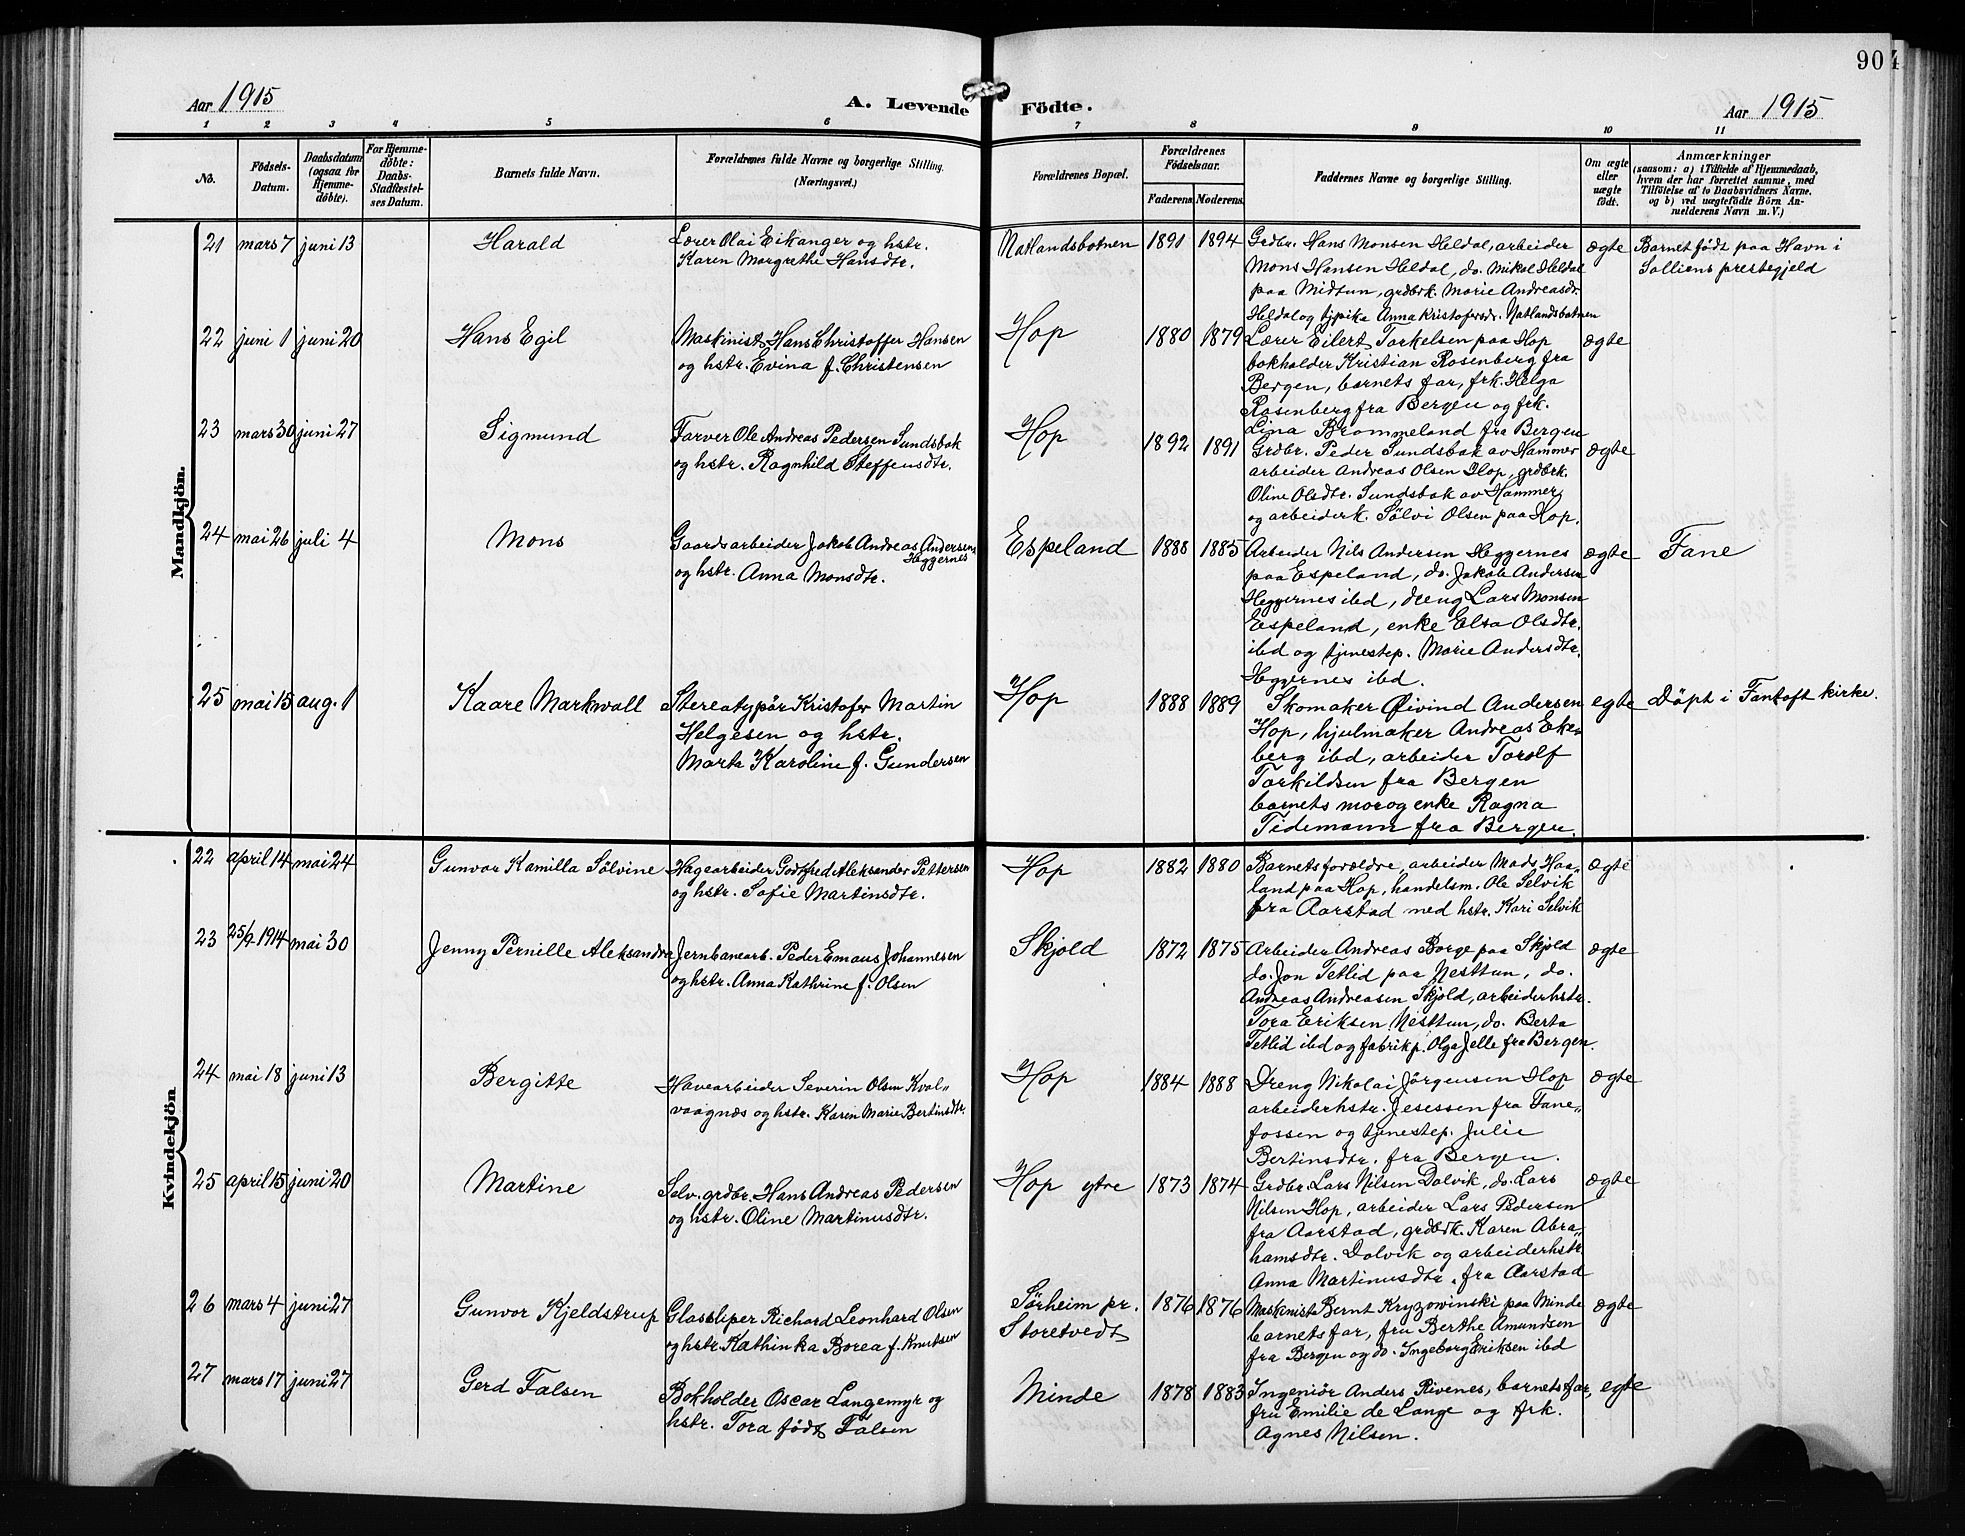 90
Aar 1915
A. Levende Födte.
Aar 1915
1 2 3 4 5 6 7 8 9 10 11
No.
Födsels-
Datum.
Daabsdatum
(ogsaa for
Hjemme-
döbte).
For Hjemme-
döbte:
Daabs-
Stadfæstel-
ses Datum.
Barnets fulde Navn.
Forældrenes fulde Navne og borgerlige Stilling.
(Næringsvei.)
Forældrenes Bopæl.
Forældrenes
Födselsaar.
Faderens
Moderens.
Faddernes Navne og borgerlige Stilling.
Om ægte
eller
uægte
födt.
Anmærkninger
(saasom: a) i Tilfælde af Hjemmedaab,
hvem der har forrettet samme, med
Tilföielse af to Daabsvidners Navne,
og b) ved uægtefödte Börn An-
melderens Navn m.V.)
Mandkjön.
21 mars 7 juni 13
Harald
Lærer Olai Eikanger og hstr.
Karen Margrethe Hansdtr.
Natlandsbotnen
1891 1894
Grdbr. Hans Monsen Heldal, arbeider
Mons Hansen Heldal, do. Mikal Heldal
paa Midtun, grdbrk. Marie Andreasdr.
Heldal og tjpika Anna Kristofersdr. Natlandsbotnen
ægte
Barnet födt paa Havn i
Solliens prestegjeld
22 juni 1 juni 20
Hans Egil
Maskinist Hans Christoffer Hansen
og hstr. Evina f. Christensen
Hop
1880 1879
Lærer Eilert Torkelsen paa Hop
bokholder Kristian Rosenberg fra
Bergen, barnets far, frk. Helga
Rosenberg fra Bergen og frk.
Lina Brommeland fra Bergen
ægte
23 mars 30 juni 27
Sigmund
Farver Ole Andreas Pedersen Sundsbak
og hstr. Ragnhild Steffensdtr.
Hop
1892 1891
Grdbr. Peder Sundsbak av Hammer
arbeider Andreas Olsen Hop, grdbrk.
Oline Olsdtr. Sundsbak av Hammer
og arbeiderk. Sölvi Olsen paa Hop.
ægte
24 mai 26 juli 4
Mons
Gaardsarbeider Jakob Andreas Andersen
Heggernes
og hstr. Anna Monsdtr.
Espeland
1888 1885
Arbeider Nils Andersen Heggernes
paa Espeland, do. Jakob Andersen
Heggernes ibd, dreng Lars Monsen
Espeland, enke Elsa Olsdtr.
ibd og tjenestep. Marie Andersdtr.
Heggernes ibd.
ægte
Fane
25 mai 15 aug. 1
Kaare Markwall
Stereotypör Kristofer Martin
Helgesen og hstr.
Marta Karoline f. Gundersen
Hop
1888 1889
Skomaker Øivind Andersen
Hop, hjulmaker Andreas Eke-
berg ibd, arbeider Torolf
Torkildsen fra Bergen
barnets mor og enke Ragna
Tidemann fra Bergen.
egte
Döpt i Fantoft kirke.
Kvindekjön
22 april 14 mai 24
Gunvor Kamilla Sölvine
Hagearbeider Godtfred Aleksander Pettersen
og hstr. Sofie Martinsdtr.
Hop
1882 1880
Barnets forældre, arbeider Mads Haa„
land paa Hop, handelsm. Ole Selvik
fra Aarstad med hstr. Kari Selvik
ægte
23 25/7 1914 mai 30
Jenny Pernille Aleksandra
Jernbanearb. Peder Emaus Johannesen
og hstr. Anna Kathrine f. Olsen
Skjold
1872 1875
Arbeider Andreas Borge paa Skjold
do. Jon Tetlid paa Nesttun, do.
Andreas Andreasen Skjold, arbeiderhstr.
Tora Eriksen Nesttun, do. Berta
Tetlid ibd og fabrikp. Olga Jelle fra Bergen.
ægte
24 mai 18 juni 13
Bergitte
Havearbeider Severin Olsen Kval„
vaagnæs og hstr. Karen Marie Bertinsdtr.
Hop
1884 1888
Dreng Nikolai Jörgensen Hop
arbeiderhstr. Jesessen fra Fane„
fossen og tjenestep. Julie
Bertinsdtr. fra Bergen.
ægte
25 april 15 juni 20
Martine
Selv. grdbr. Hans Andreas Pedersen
og hstr. Oline Martinusdtr.
Hop ytre
1873 1874
Grdbr. Lars Nilsen Dalvik, do. Lars
Nilsen Hop, arbeider Lars Pedersen
fra Aarstad, grdbrk. Karen Abra„
hamsdtr. Dalvik og arbeiderhstr.
Anna Martinusdtr. fra Aarstad
ægte
26 mars 4 juni 27
Gunvor Kjeldstrup
Glassliper Richard Leonhard Olsen
og hstr. Kathinka Borea f. Knutsen
Sörheim pr.
Storetvedt
1876 1876
Maskinist Bernt Kryzowinski paa Minde
barnets far, fru Berthe Amundsen
fra Bergen og do. Ingeborg Eriksen ibd
ægte
27 mars 17 juni 27
Gerd Falsen
Bokholder Oscar Langemyr og
hstr. Tora födt Falsen
Minde
1878 1883
Ingeniör Anders Rivenes, barnets far,
fru Emilie de Lange og frk.
Agnes Nilsen.
egte